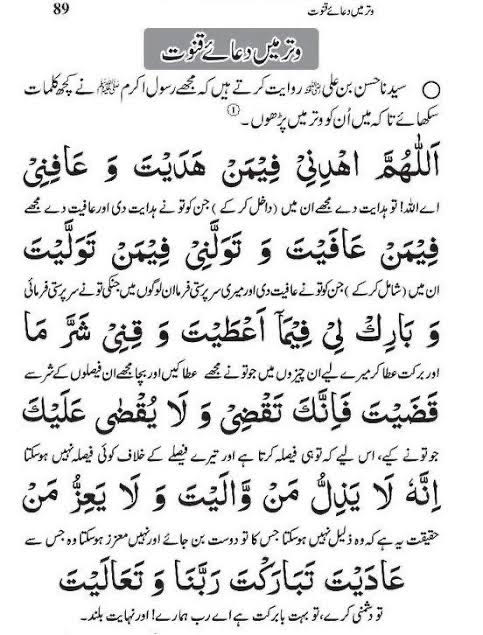 وتر میں دعائے قنوت 89
وتر میں دعائے قنوت
سیدنا حسن بن علی ؓ روایت کرتے ہیں کہ مجھے رسول اکرم ﷺ نے کچھ کلمات
سکھائے تاکہ میں اُن کو وتر میں پڑھوں۔ ①
اَللّٰهُمَّ اهْدِنِيْ فِيْمَنْ هَدَيْتَ وَ عَافِنِيْ
اے اللہ! تو ہدایت دے مجھے ان میں (داخل کر کے) جن کو تو نے ہدایت دی اور عافیت دے مجھے
فِيْمَنْ عَافَيْتَ وَ تَوَلَّنِيْ فِيْمَنْ تَوَلَّيْتَ
ان میں (شامل کر کے) جن کو تو نے عافیت دی اور میری سرپرستی فرما ان لوگوں میں جنکی تو نے سرپرستی فرمائی
وَ بَارِكْ لِيْ فِيْمَا اَعْطَيْتَ وَ قِنِيْ شَرَّ مَا
اور برکت عطا کر میرے لیے ان چیزوں میں جو تو نے مجھے عطا کیں اور بچا مجھے ان فیصلوں کے شر سے
قَضَيْتَ فَاِنَّكَ تَقْضِيْ وَ لَا يُقْضٰى عَلَيْكَ
جو تو نے کیے، اس لیے کہ تو ہی فیصلہ کرتا ہے اور تیرے فیصلے کے خلاف کوئی فیصلہ نہیں ہو سکتا
اِنَّهٗ لَا يَذِلُّ مَنْ وَّالَيْتَ وَ لَا يَعِزُّ مَنْ
حقیقت یہ ہے کہ وہ ذلیل نہیں ہو سکتا جس کا تو دوست بن جائے اور نہیں معزز ہو سکتا وہ جس سے
عَادَيْتَ تَبَارَكْتَ رَبَّنَا وَ تَعَالَيْتَ
تو دشمنی کرے، تو بہت بابرکت ہے اے رب ہمارے! اور نہایت بلند۔